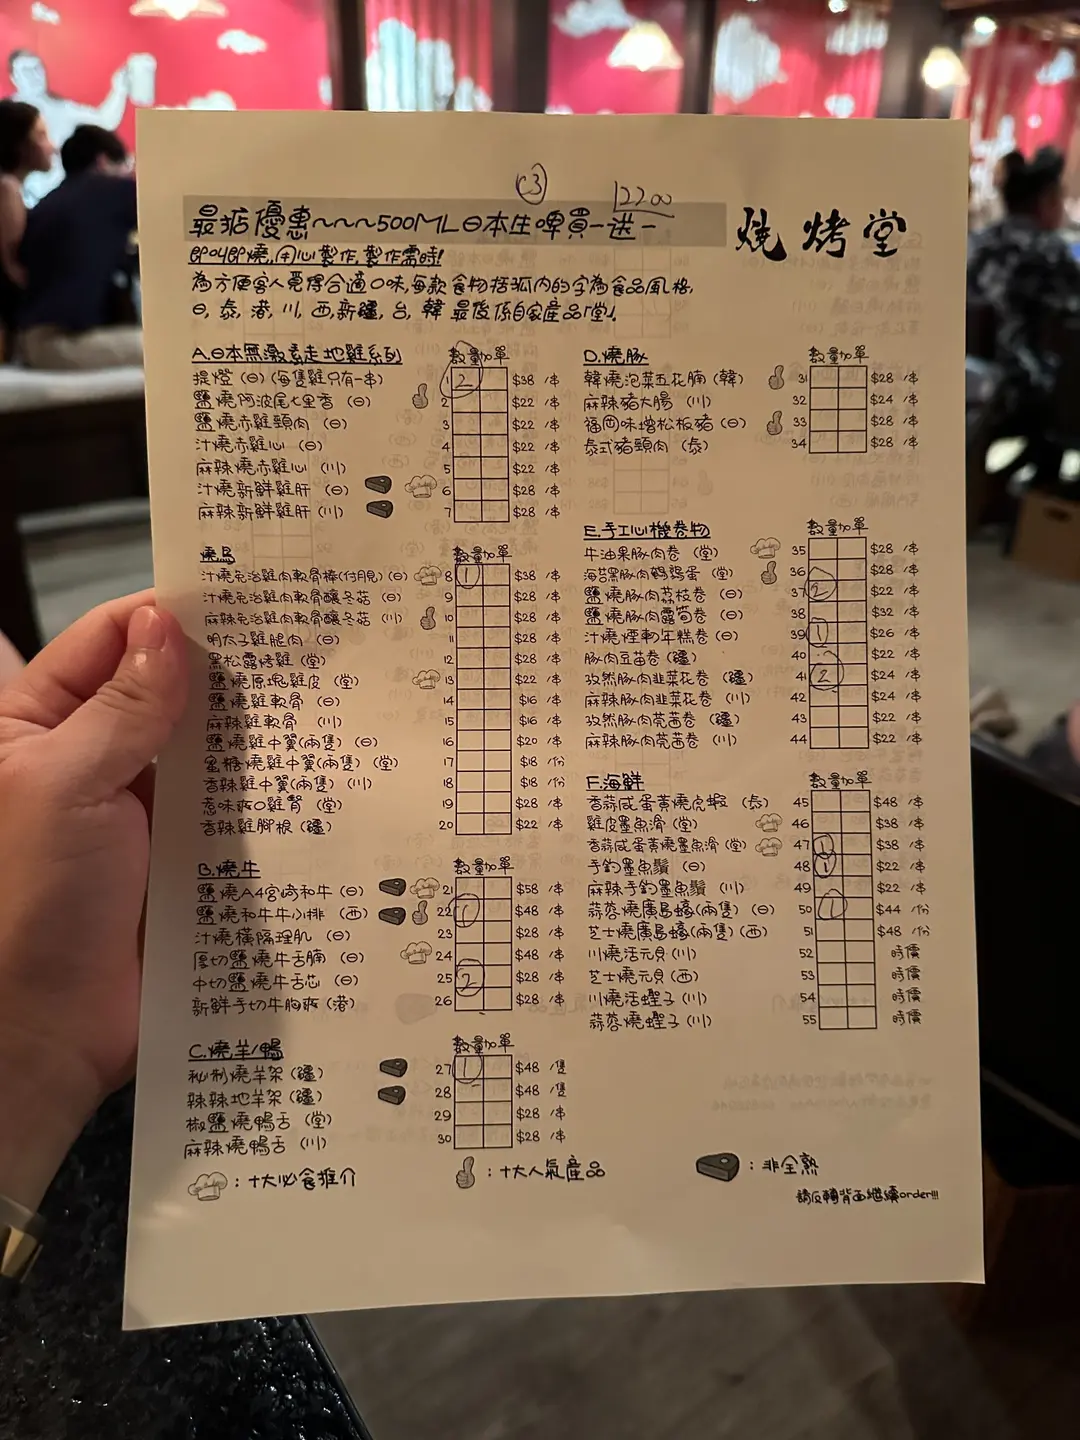 C3
2200
最掂優惠~~~500ML日本生啤買一送一
燒烤堂
即叫即燒,用心製作,製作需時!
為方便客人覓得合適口味,每款食物括弧內的字為食品風格,
日,泰,港,川,西,新疆,台,韓 最後係自家產品「堂」.
A.日本無激素走地雞系列 數量 加單
提燈 (日) (每隻雞只有一串) 1 2 $38 /串
鹽燒阿波尾七里香 (日) 2 $22 /串
鹽燒赤雞頸肉 (日) 3 $22 /串
汁燒赤雞心 (日) 4 $22 /串
麻辣燒赤雞心 (川) 5 $22 /串
汁燒新鮮雞肝 (日) 6 $28 /串
麻辣新鮮雞肝 (川) 7 $28 /串
燒鳥 數量 加單
汁燒免治雞肉軟骨棒(付月見) (日) 8 1 $38 /串
汁燒免治雞肉軟骨釀冬菇 (日) 9 $28 /串
麻辣免治雞肉軟骨釀冬菇 (川) 10 $28 /串
明太子雞腿肉 (日) 11 $28 /串
黑松露烤雞 (堂) 12 $28 /串
鹽燒原塊雞皮 (堂) 13 $22 /串
鹽燒雞軟骨 (日) 14 $16 /串
麻辣雞軟骨 (川) 15 $16 /串
鹽燒雞中翼(兩隻) (日) 16 $20 /串
蜜糖燒雞中翼(兩隻) (堂) 17 $18 /份
香辣雞中翼(兩隻) (川) 18 $18 /份
惹味爽口雞腎 (堂) 19 $28 /串
香辣雞腳根 (疆) 20 $22 /串
B.燒牛 數量 加單
鹽燒A4宮崎和牛 (日) 21 $58 /串
鹽燒和牛牛小排 (西) 22 1 $48 /串
汁燒橫隔理肌 (日) 23 $28 /串
厚切鹽燒牛舌腩 (日) 24 $48 /串
中切鹽燒牛舌芯 (日) 25 2 $28 /串
新鮮手切牛胸爽 (港) 26 $28 /串
C.燒羊/鴨 數量 加單
秘制燒羊架 (疆) 27 1 $48 /隻
辣辣地羊架 (疆) 28 $48 /隻
椒鹽燒鴨舌 (堂) 29 $28 /串
麻辣燒鴨舌 (川) 30 $28 /串
D.燒豚 數量 加單
韓燒泡菜五花腩 (韓) 31 $28 /串
麻辣豬大腸 (川) 32 $24 /串
福岡味增松板豬 (日) 33 $28 /串
泰式豬頸肉 (泰) 34 $28 /串
E.手工心機卷物 數量 加單
牛油果豚肉卷 (堂) 35 $28 /串
海苔黑豚肉鵪鶉蛋 (堂) 36 $28 /串
鹽燒豚肉荔枝卷 (日) 37 2 $22 /串
鹽燒豚肉露筍卷 (日) 38 $32 /串
汁燒煙軔年糕卷 (日) 39 1 $26 /串
豚肉豆苗卷 (疆) 40 $22 /串
孜然豚肉韭菜花卷 (疆) 41 2 $24 /串
麻辣豚肉韭菜花卷 (川) 42 $24 /串
孜然豚肉芫茜卷 (疆) 43 $22 /串
麻辣豚肉芫茜卷 (川) 44 $22 /串
F.海鮮 數量 加單
香蒜咸蛋黃燒虎蝦 (泰) 45 $48 /串
雞皮墨魚滑 (堂) 46 $38 /串
香蒜咸蛋黃燒墨魚滑 (堂) 47 1 $38 /串
手釣墨魚鬚 (日) 48 1 $22 /串
麻辣手釣墨魚鬚 (川) 49 $22 /串
蒜蓉燒廣島蠔(兩隻) (日) 50 1 $44 /份
芝士燒廣島蠔(兩隻) (西) 51 $48 /份
川燒活元貝 (川) 52 時價
芝士燒元貝 (西) 53 時價
川燒活蟶子 (川) 54 時價
蒜蓉燒蟶子 (川) 55 時價
:十大必食推介
:十大人氣產品
:非全熟
請反轉背面繼續order!!!